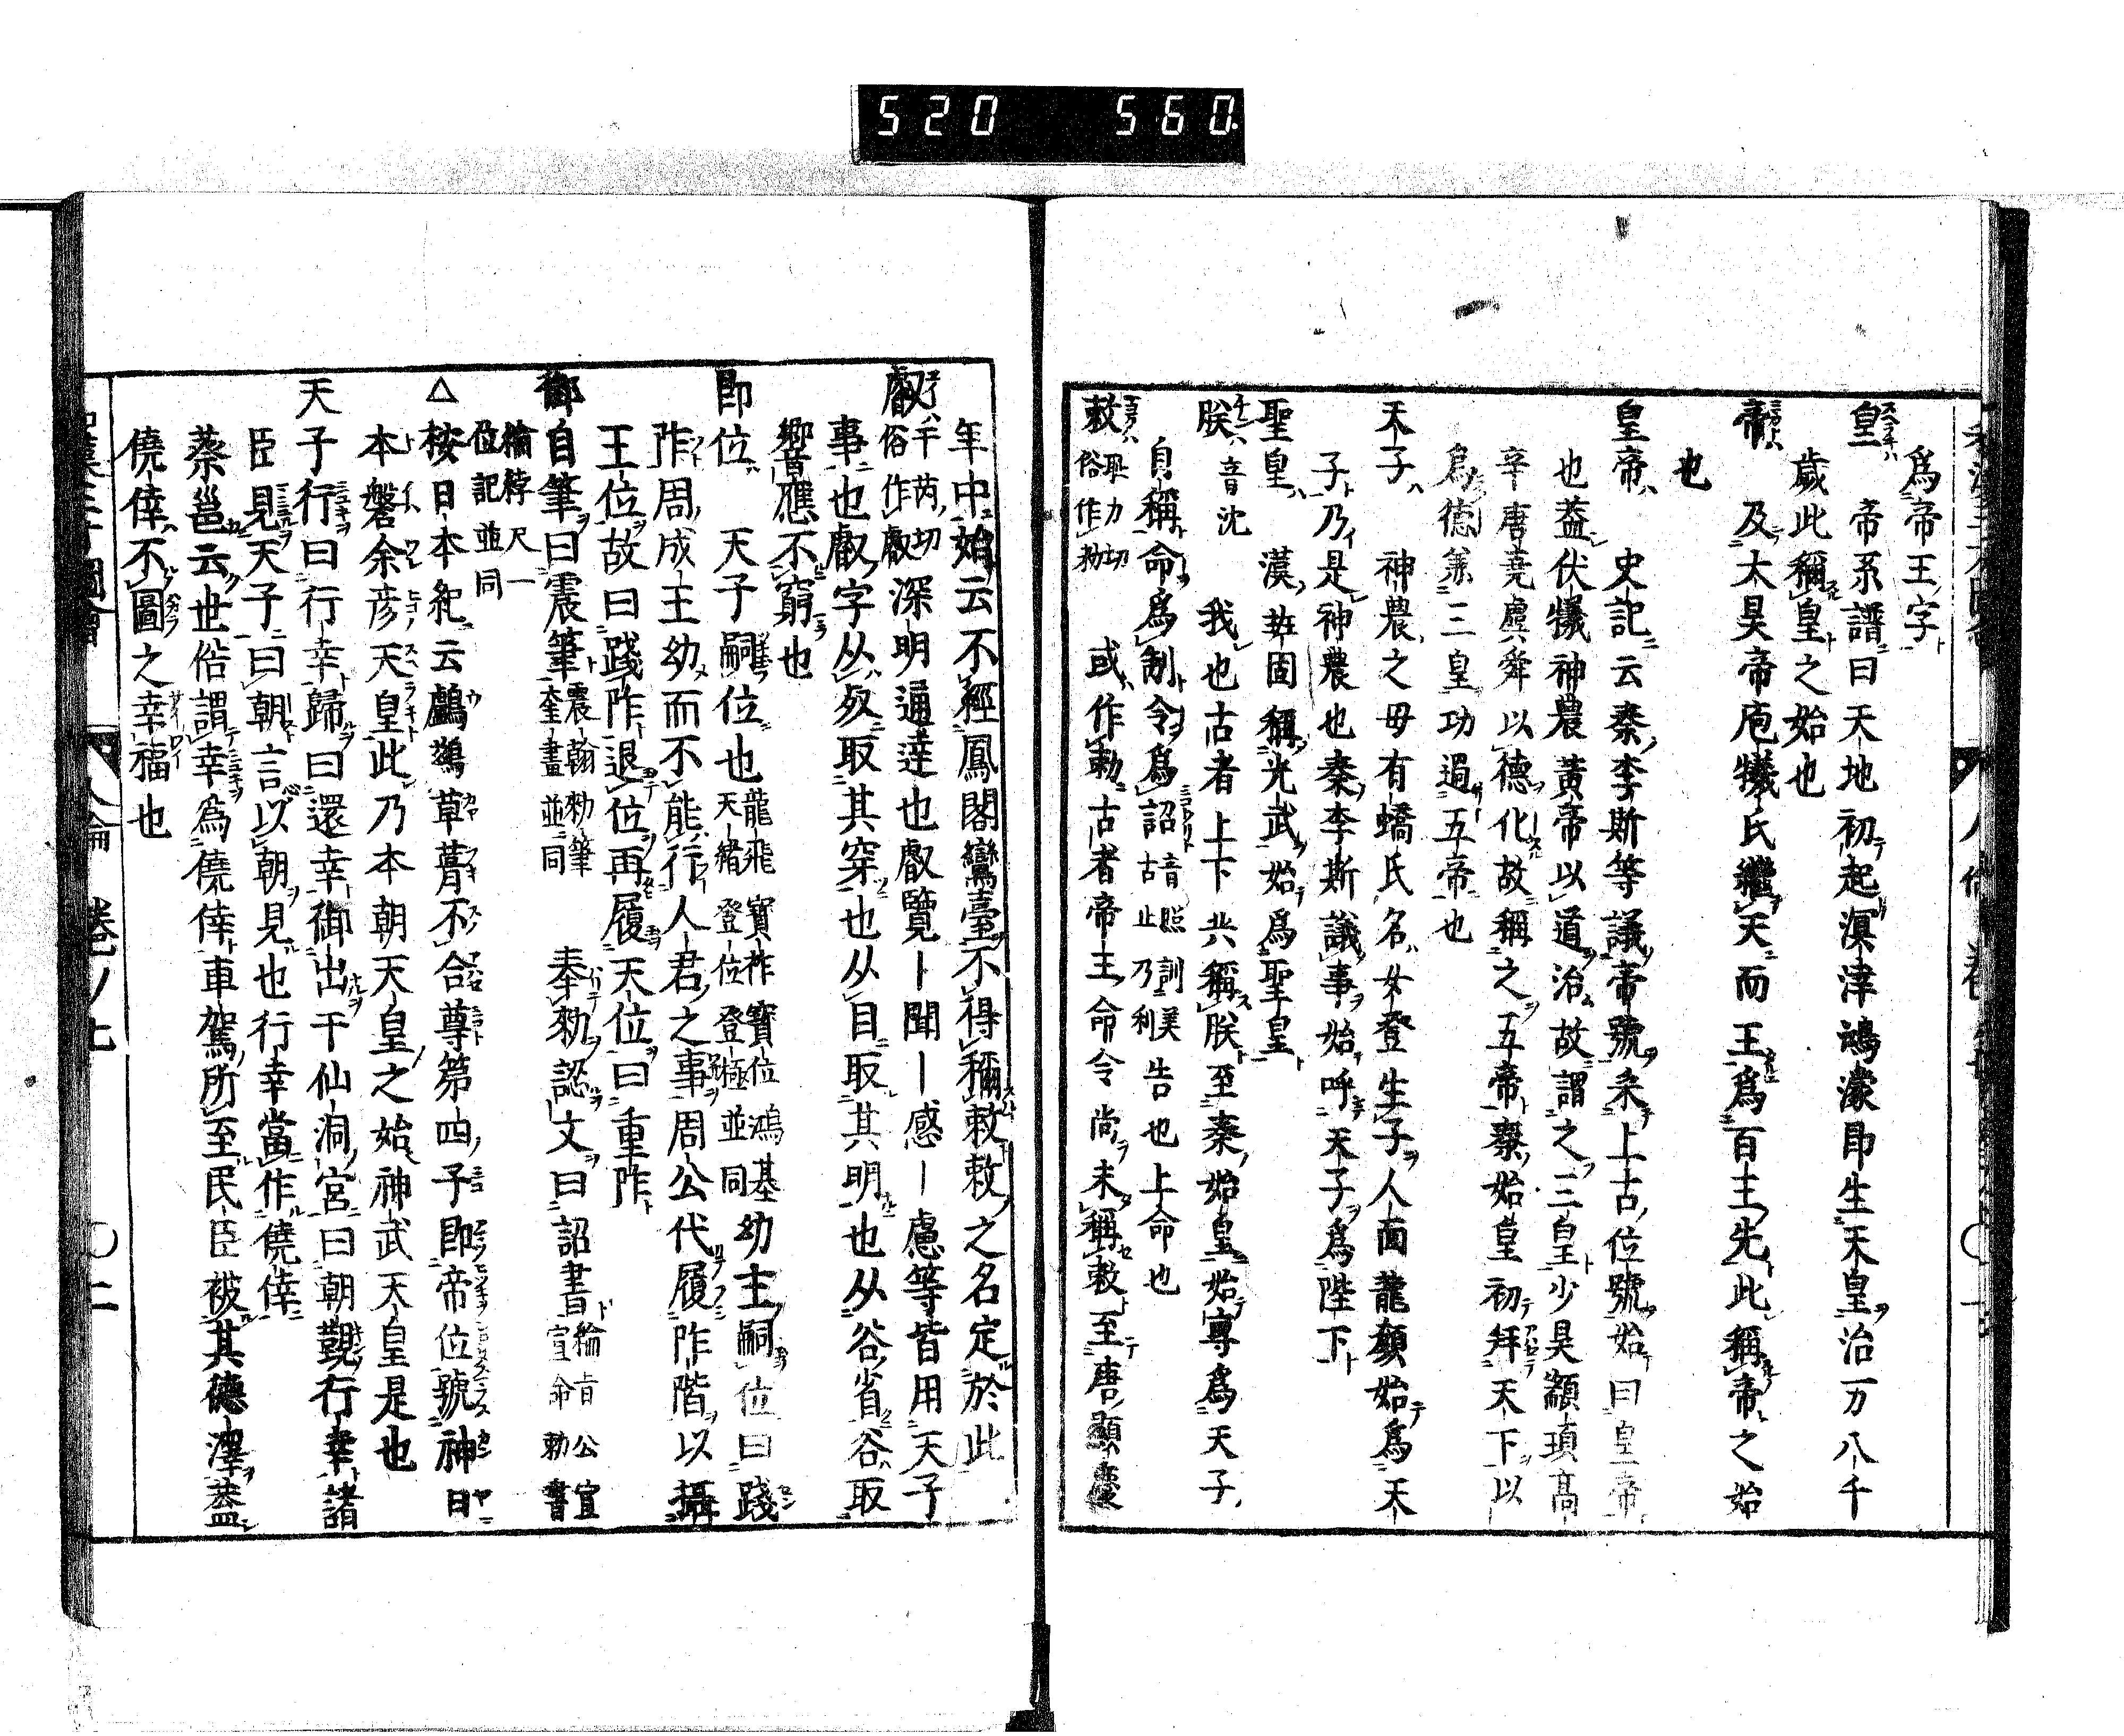 520 560
爲帝王字
皇 帝系譜曰天地初起溟津鴻濛即生天皇治一万八千
歲此稱皇之始也
帝 及太昊帝庖犧氏繼天而王爲百王先此稱帝之始
也
皇帝 史記云秦李斯等議帝號采上古位號始曰皇帝
也蓋伏犧神農黃帝以道治故謂之三皇少昊顓頊高
辛唐堯虞舜以德化故稱之五帝秦始皇初拜天下以
爲德兼三皇功過五帝也
天子 神農之母有蟜氏名女登生子人面龍顏始爲天
子乃是神農也秦李斯議事始呼天子爲陛下
聖皇 漢班固稱光武始爲聖皇
朕 音沈 我也古者上下共稱朕至秦始皇始専爲天子
自稱命爲制令爲詔 音照訓美古止乃利 告也上命也
敕 耻力切俗作勅 或作勑古者帝王命令尚未稱敕至唐顯慶
年中始云不經鳳閣鸞臺不得稱敕敕之名定於此
叡 于芮切俗作睿 深明通達也叡覽－聞－感－慮等皆用天子
事也叡字从㕡取其穿也从目取其明也从谷省谷取
響應不窮也
即位 天子嗣位也 龍飛寶祚寶位鴻基天緒登位登極並同 幼主嗣位曰踐
阼周成王幼而不能行人君之事周公代履阼階以攝
王位故曰踐阼退位再履天位曰重阼
御自筆曰震筆 震翰勅筆奎畫並同 奉勅認文曰詔書 綸旨公宣宣命勅書
綸綍尺一位記並同
△按日本紀云鸕鷀草葺不合尊第四子即帝位號神日
本磐余彦天皇此乃本朝天皇之始神武天皇是也
天子行曰行幸歸曰還幸御出于仙洞宮曰朝覲行幸諸
臣見天子曰朝言以朝見也行幸當作僥倖
蔡邕云世俗謂幸爲僥倖車駕所至民臣被其德澤蓋
僥倖不圖之幸福也
人倫 卷ノ七 〇二